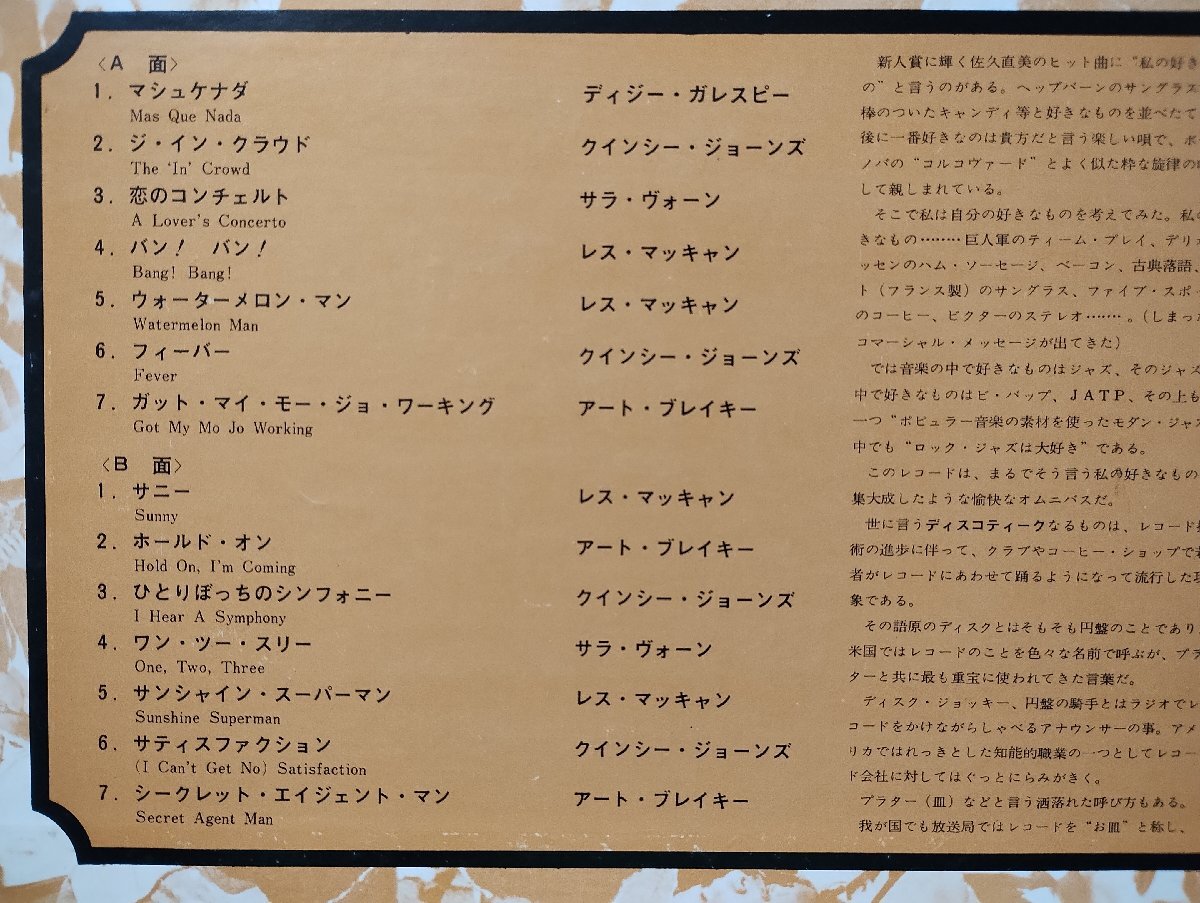 〈A 面〉
1. マシュケナダ ディジー・ガレスピー
Mas Que Nada
2. ジ・イン・クラウド クインシー・ジョーンズ
The 'In' Crowd
3. 恋のコンチェルト サラ・ヴォーン
A Lover's Concerto
4. バン! バン! レス・マッキャン
Bang! Bang!
5. ウォーターメロン・マン レス・マッキャン
Watermelon Man
6. フィーバー クインシー・ジョーンズ
Fever
7. ガット・マイ・モー・ジョ・ワーキング アート・ブレイキー
Got My Mo Jo Working
〈B 面〉
1. サニー レス・マッキャン
Sunny
2. ホールド・オン アート・ブレイキー
Hold On, I'm Coming
3. ひとりぼっちのシンフォニー クインシー・ジョーンズ
I Hear A Symphony
4. ワン・ツー・スリー サラ・ヴォーン
One, Two, Three
5. サンシャイン・スーパーマン レス・マッキャン
Sunshine Superman
6. サティスファクション クインシー・ジョーンズ
(I Can't Get No) Satisfaction
7. シークレット・エイジェント・マン アート・ブレイキー
Secret Agent Man
新人賞に輝く佐久直美のヒット曲に"私の好き
の"と言うのがある。ヘップバーンのサングラス
棒のついたキャンディ等と好きなものを並べたて
後に一番好きなのは貴方だと言う楽しい唄で、ボ
ノバの"コルコヴァード"とよく似た粋な旋律の
して親しまれている。
そこで私は自分の好きなものを考えてみた。私の
きなもの‥‥‥‥巨人軍のティーム・プレイ、デリ
ッセンのハム・ソーセージ、ベーコン、古典落語、
ト(フランス製)のサングラス、ファイブ・スポ
のコーヒー、ビクターのステレオ‥‥‥。(しまった
コマーシャル・メッセージが出てきた)
では音楽の中で好きなものはジャズ、そのジャズ
中で好きなものはビ・バップ、JATP、その上も
一つ"ポピュラー音楽の素材を使ったモダン・ジャズ
中でも"ロック・ジャズは大好き"である。
このレコードは、まるでそう言う私の好きなもの
集大成したような愉快なオムニバスだ。
世に言うディスコティークなるものは、レコード
術の進歩に伴って、クラブやコーヒー・ショップで若
者がレコードにあわせて踊るようになって流行した現
象である。
その語原のディスクとはそもそも円盤のことであり
米国ではレコードのことを色々な名前で呼ぶが、プラ
ターと共に最も重宝に使われてきた言葉だ。
ディスク・ジョッキー、円盤の騎手とはラジオでレ
コードをかけながらしゃべるアナウンサーの事。アメ
リカではれっきとした知能的職業の一つとしてレコー
ド会社に対してはぐっとにらみがきく。
プラター(皿)などと言う洒落れた呼び方もある。
我が国でも放送局ではレコードを"お皿"と称し、